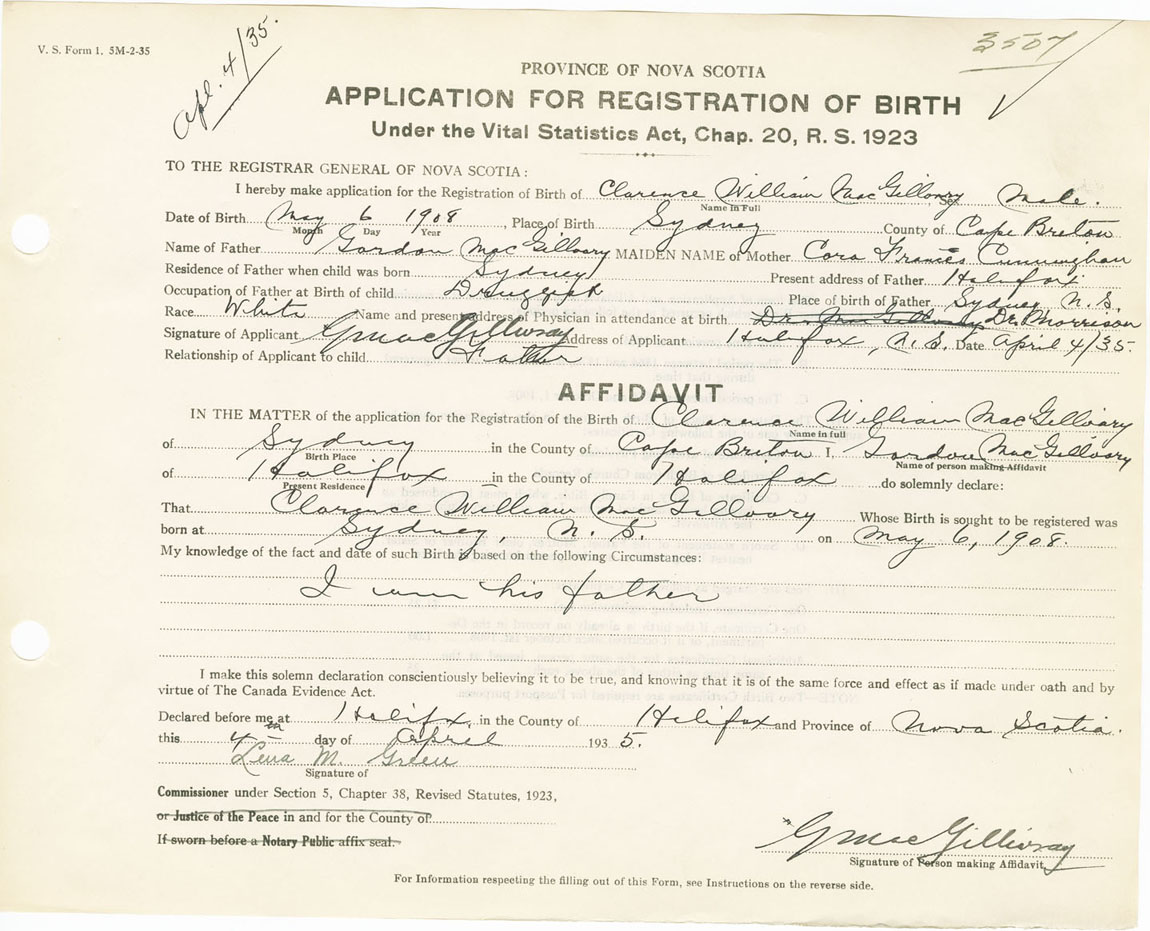 V. S. Form 1. 5M-2-35
Apl. 4/35.
3507
PROVINCE OF NOVA SCOTIA
APPLICATION FOR REGISTRATION OF BIRTH
Under the Vital Statistics Act, Chap. 20, R. S. 1923
TO THE REGISTRAR GENERAL OF NOVA SCOTIA:
I hereby make application for the Registration of Birth of Clarence William MacGillvary Sex Male.
Name in Full
Date of Birth May 6 1908, Place of Birth Sydney County of Cape Breton
Month Day Year
Name of Father Gordon MacGillvary MAIDEN NAME of Mother Cora Frances Cunningham
Residence of Father when child was born Sydney Present address of Father Halifax
Occupation of Father at Birth of child Druggist Place of birth of Father Sydney N. S.
Race White Name and present address of Physician in attendance at birth Dr. MacGillvary Dr. Morrison
Signature of Applicant GMacGillivray Address of Applicant Halifax, N. S. Date April 4/35.
Relationship of Applicant to child Father
AFFIDAVIT
IN THE MATTER of the application for the Registration of the Birth of Clarence William MacGillvary
Name in full
of Sydney in the County of Cape Breton I, Gordon MacGillvary
Birth Place Name of person making Affidavit
of Halifax in the County of Halifax do solemnly declare:
Present Residence
That Clarence William MacGillvary Whose Birth is sought to be registered was
born at Sydney, N. S. on May 6, 1908.
My knowledge of the fact and date of such Birth is based on the following Circumstances:
I am his father
I make this solemn declaration conscientiously believing it to be true, and knowing that it is of the same force and effect as if made under oath and by
virtue of The Canada Evidence Act.
Declared before me at Halifax, in the County of Halifax and Province of Nova Scotia.
this 4th day of April 1935.
Lena M. Green
Signature of
Commissioner under Section 5, Chapter 38, Revised Statutes, 1923,
or Justice of the Peace in and for the County of
If sworn before a Notary Public affix seal.
GMacGillivray
Signature of Person making Affidavit,
For Information respecting the filling out of this Form, see Instructions on the reverse side.